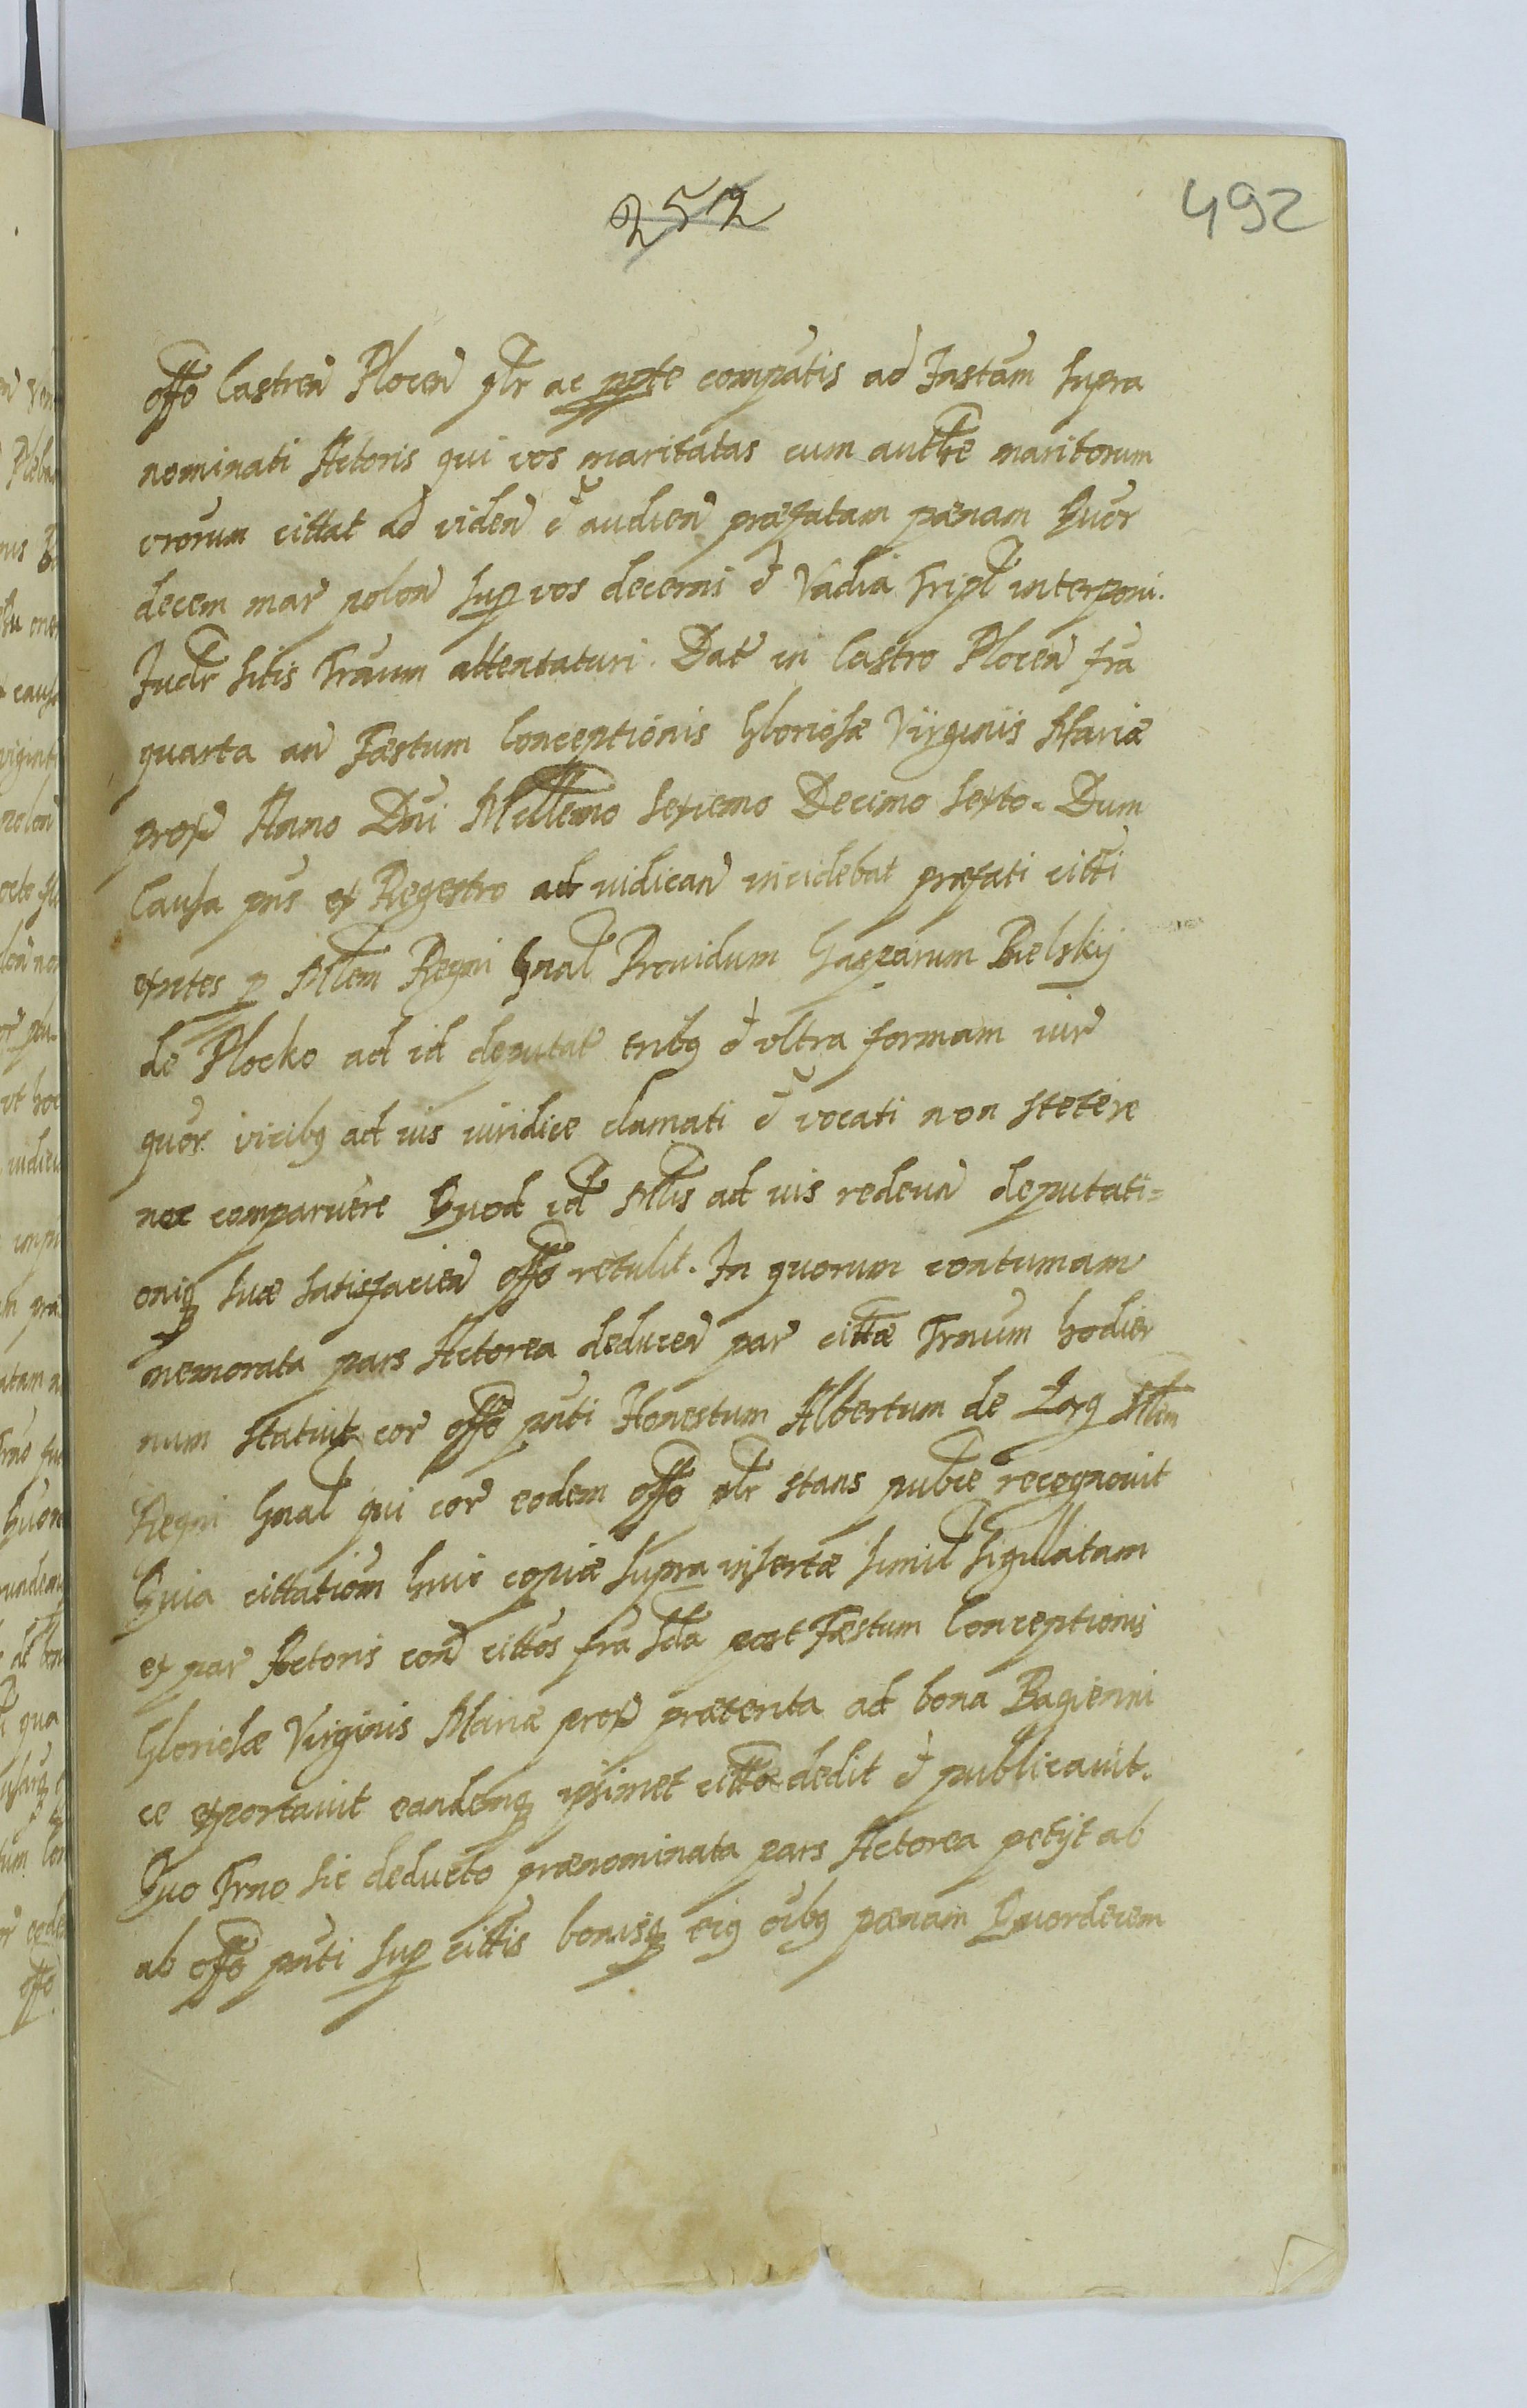 252
492
offo Castren Plocen plr ac ppte computis ad Instam supra
nominati Actoris qui vos maritatas cum authte maritorum
vrorum cittat ad viden et audien præfatam pænam Quor
decem mar polon sup vos decerni et Vadia Tripl interponi.
Judr sitis Trnum attentaturi. Dat in Castro Plocen fra
quarta an Fæstum Conceptionis Gloriosæ Virginis Mariæ
prox Anno Dni Millemo Sexcmo Decimo Sexto. Dum
Causa pns ex Regestro ad iudican incidebat præfati citti
exntes p Mlem Regni Gnal Prouidum Gasparum Bielskij
de Plocko ad id deputat tribq et vltra formam iur
quor vicibq ad ius iuridice clamati et vocati non stetere
nec comparuere Quod id Mlis ad ius redeun deputati=
oniq suæ satisfacien offo retulit. In quorum contumam
memorata pars Actorea deducen par cittæ Trnum hodier
num statuit cor offo pnti Honestum Albertum de Log Mlem
Regni Gnal qui cor eodem offo plr stans publce recognouit
Quia cittatiom huic copiæ supra insertæ simil sigillatam
ex par Actoris con cittos fra scda post Fæstum Conceptionis
Gloriosæ Virginis Mariæ prox præterita ad bona Bagienni
ce exportauit eandemq ipsimet cittæ dedit et publicauit.
Quo Trno sic deducto prænominata pars Actorea petijt ab
ab offo pnti sup cittis bonisq eiq oibq pænam Quordecem